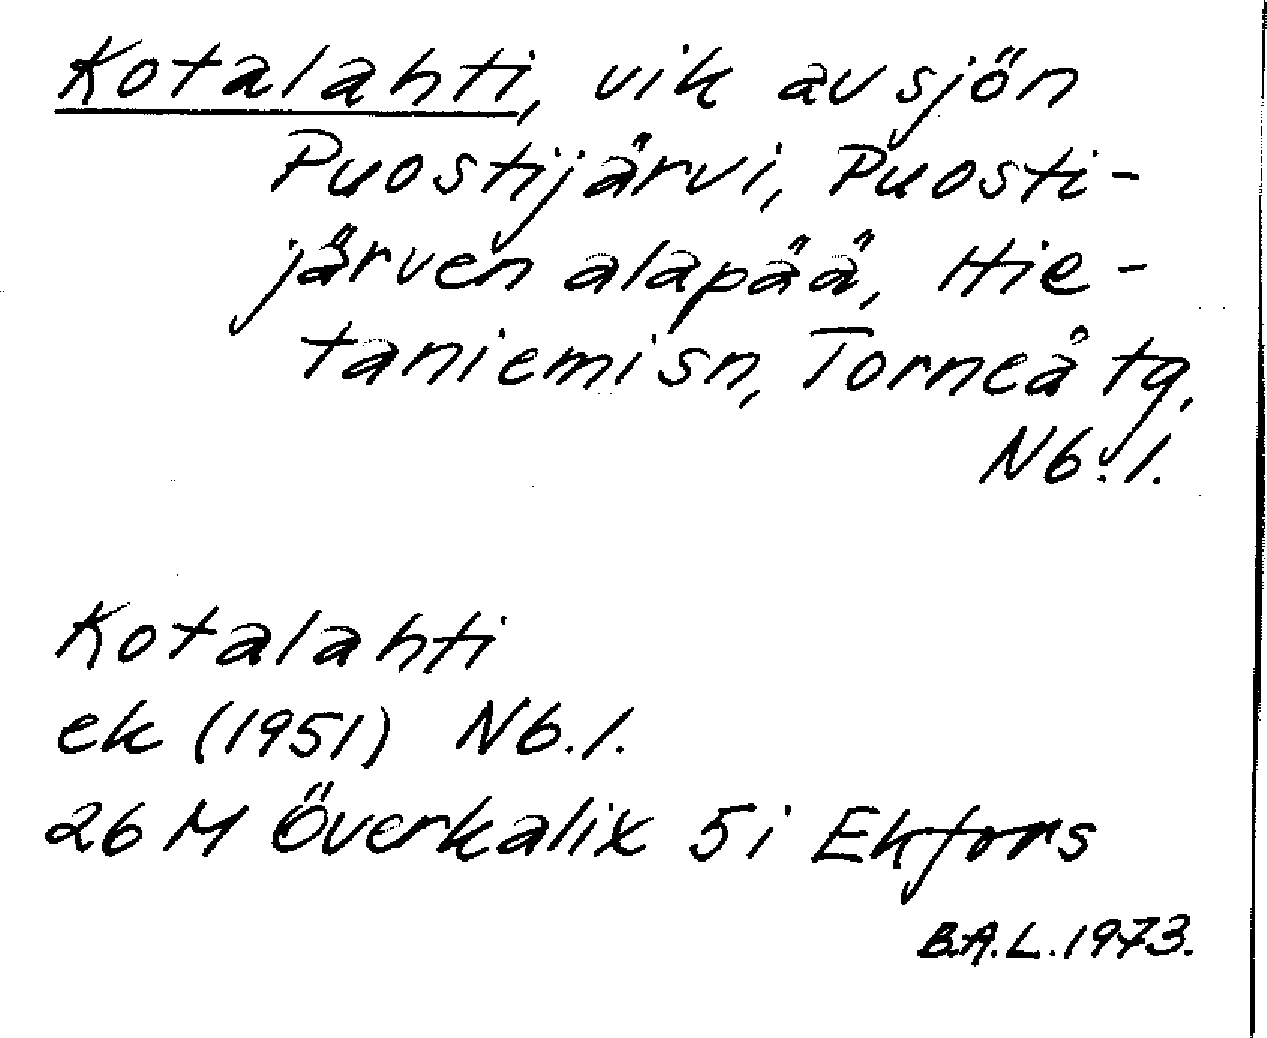 Kotalahti, vik av sjön
Puostijärvi, Puosti-
järven alapää, Hie-
taniemi sn, Torneå tg,
Nb. l.
Kotalahti
ek (1951) Nb. l.
26 M Överkalix 5i Ekfors
B.A.L. 1973.